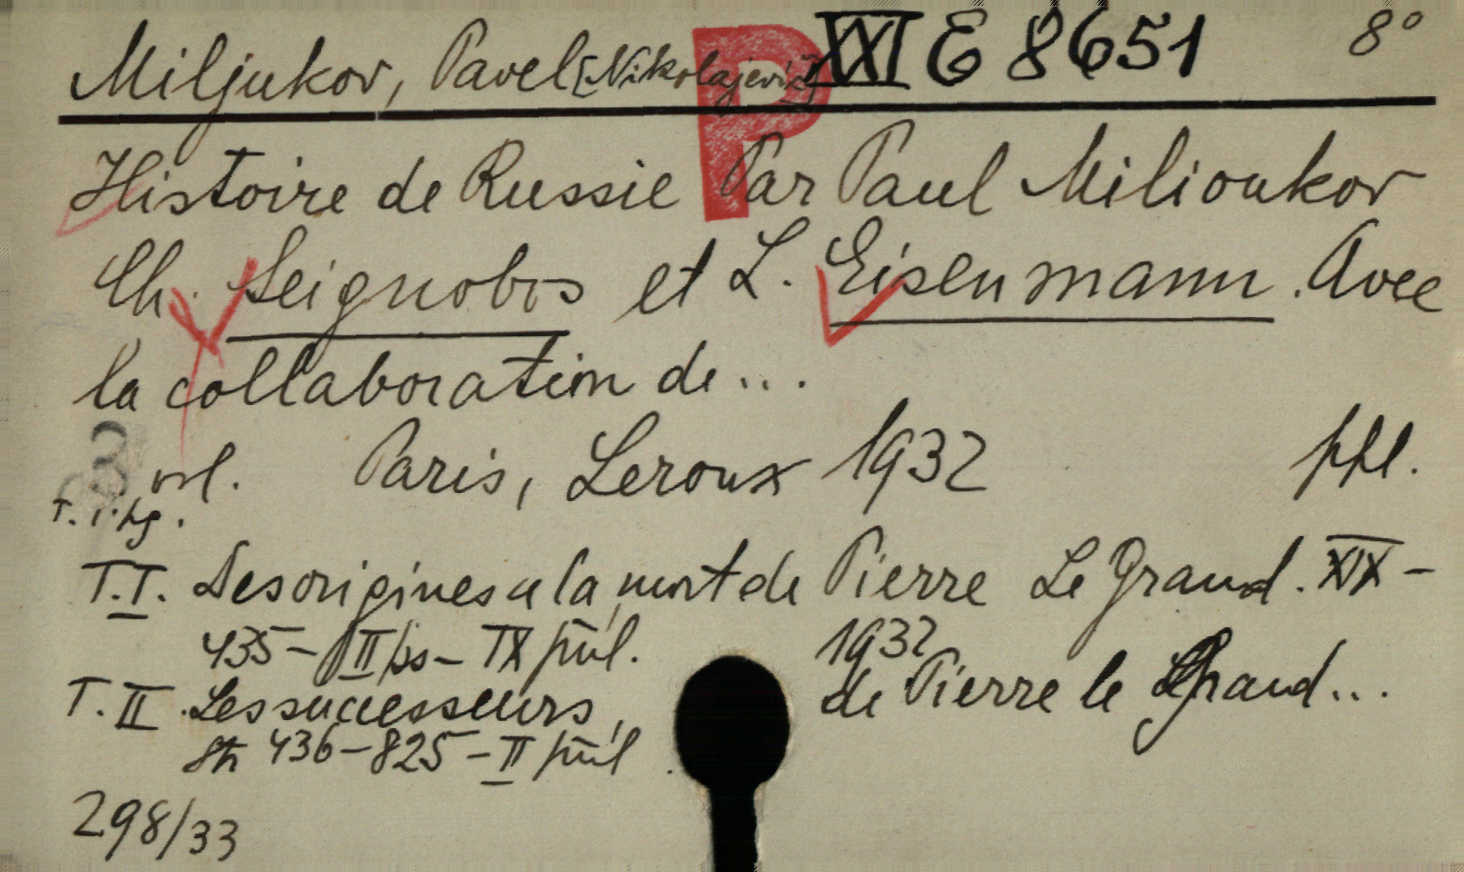 Miljukov, Pavel [Nikolajevič] XXI E 8651 8°
P
Histoire de Russie Par Paul Milioukov
Ch. Seignobos et L. Eisenmann. Avec
la collaboration de ...
3 vol. Paris, Leroux 1932 ppl.
T.I. Des origines a la mort de Pierre Le Grand. XIX-
435- II 1932
T.II. Les successeurs de Pierre le Grand...
str 436-825-II
298/33